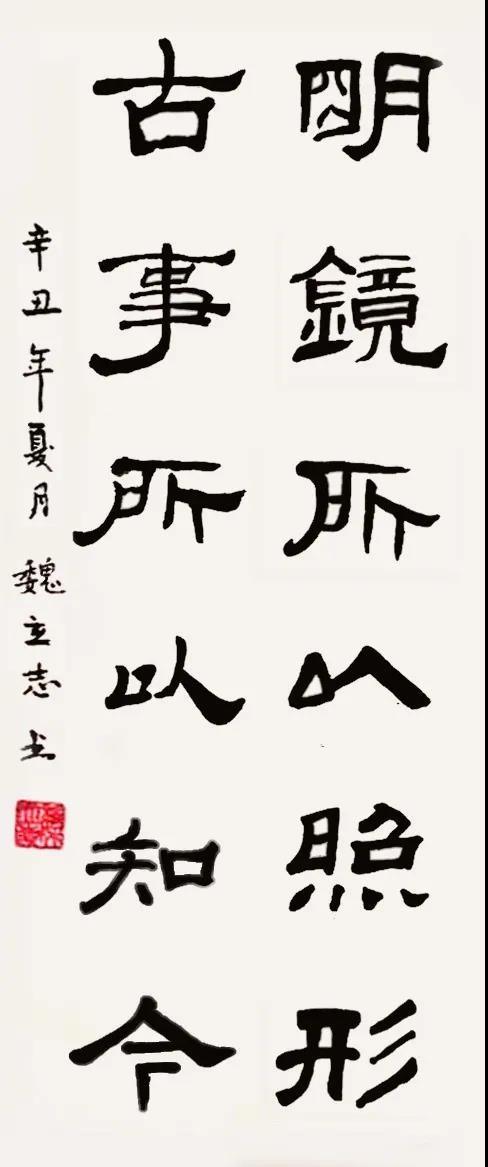 明鏡所以照形
古事所以知今
辛丑年夏月 魏立志书